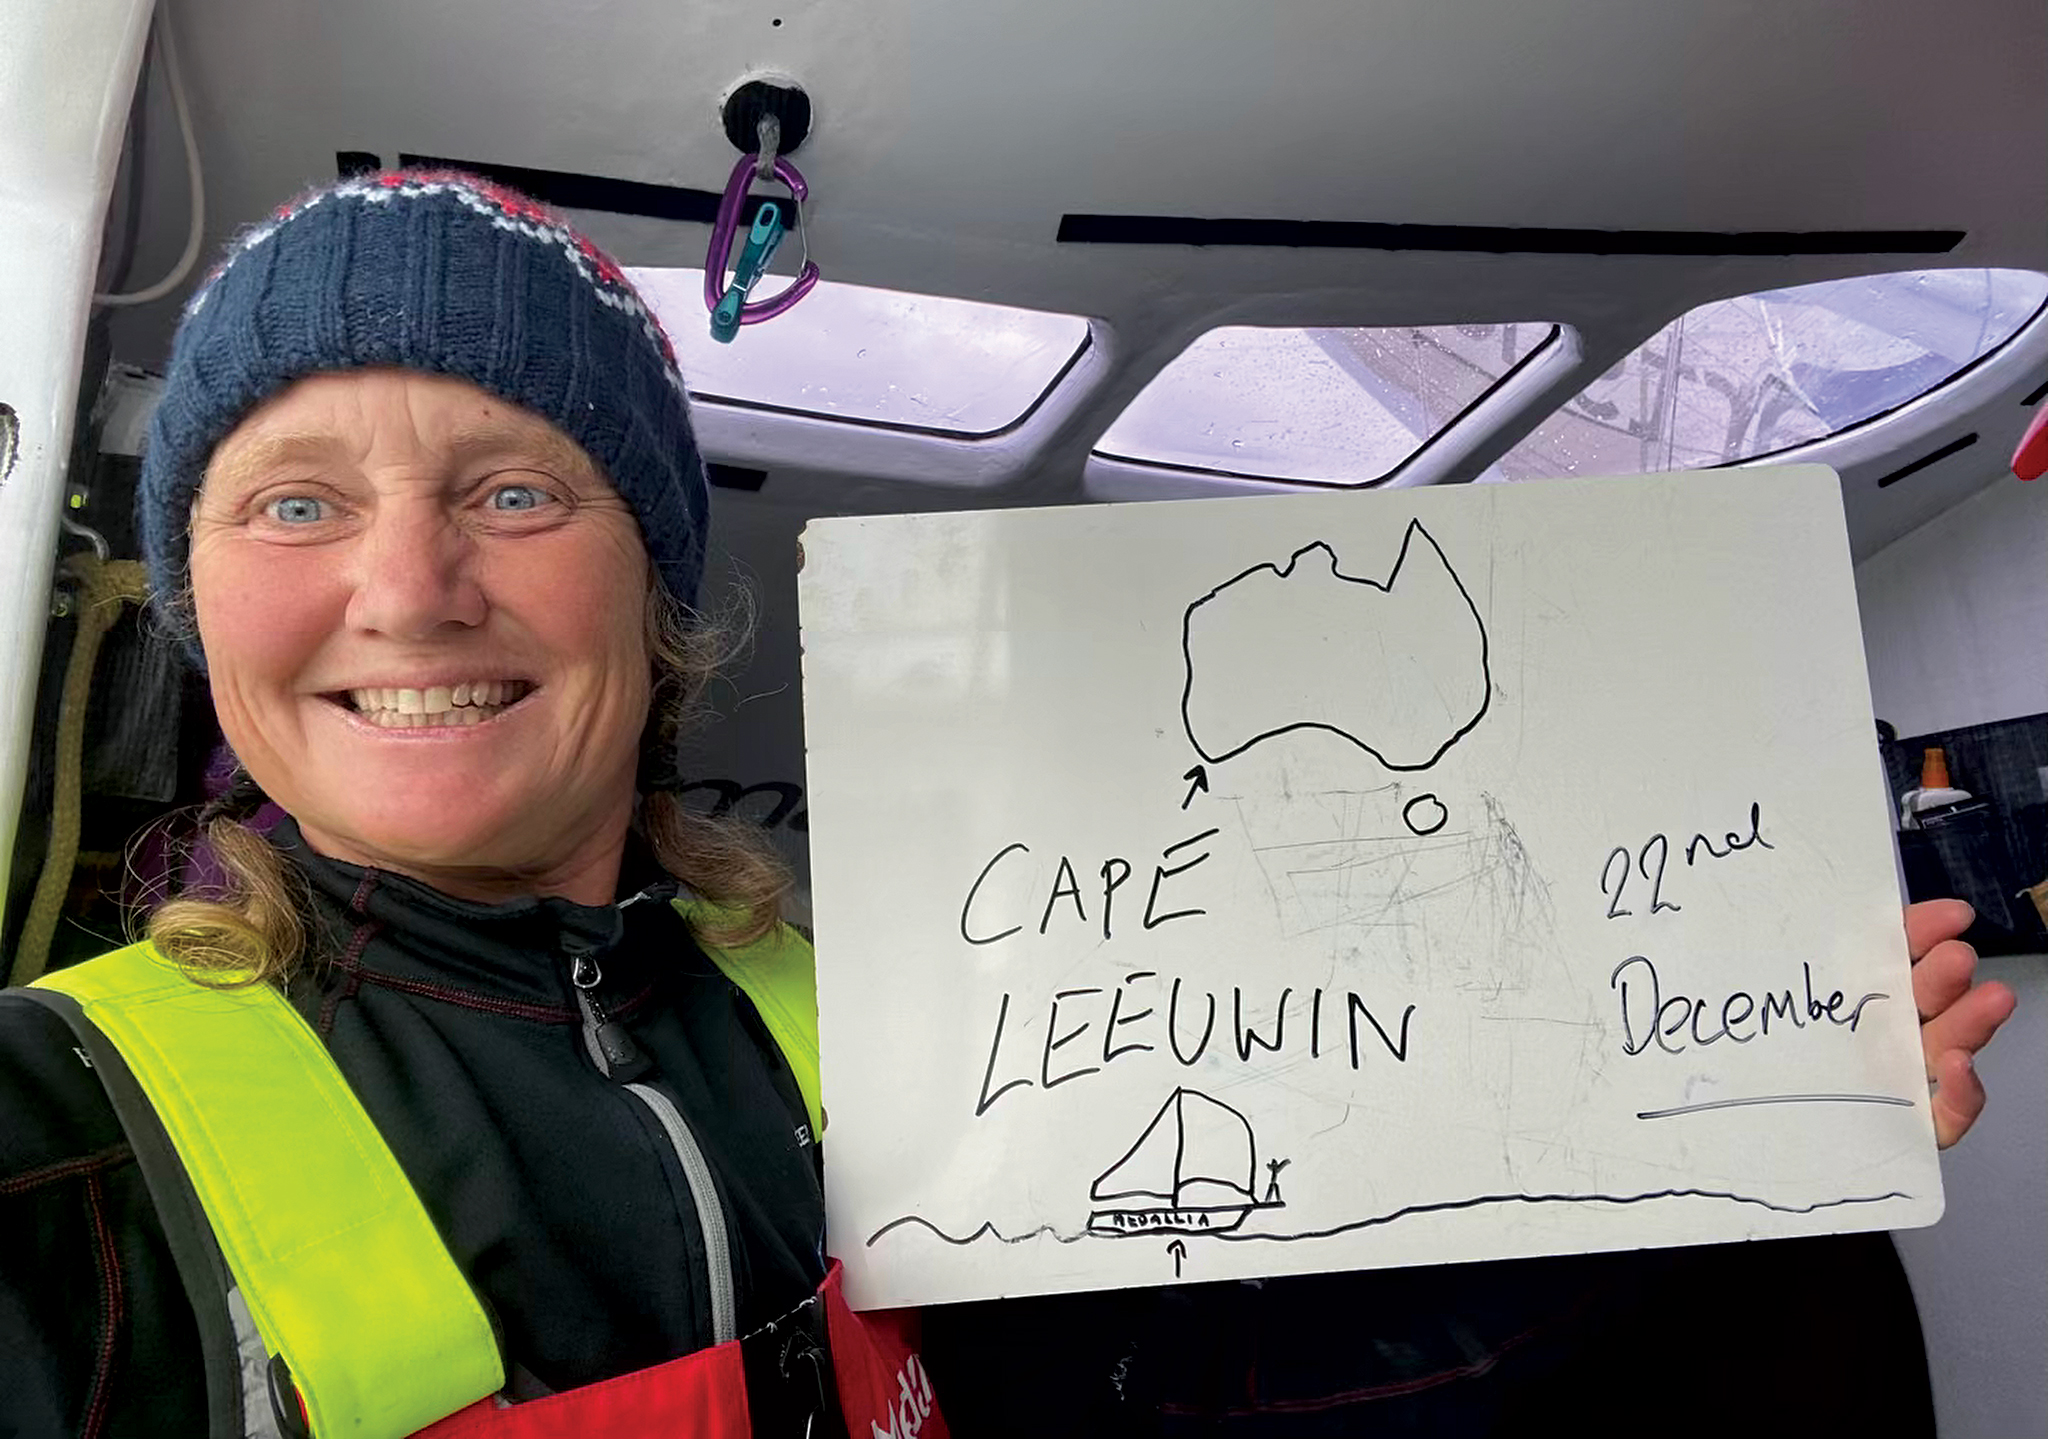 CAPE
LEEUWIN
22nd
December
MEDALLIA